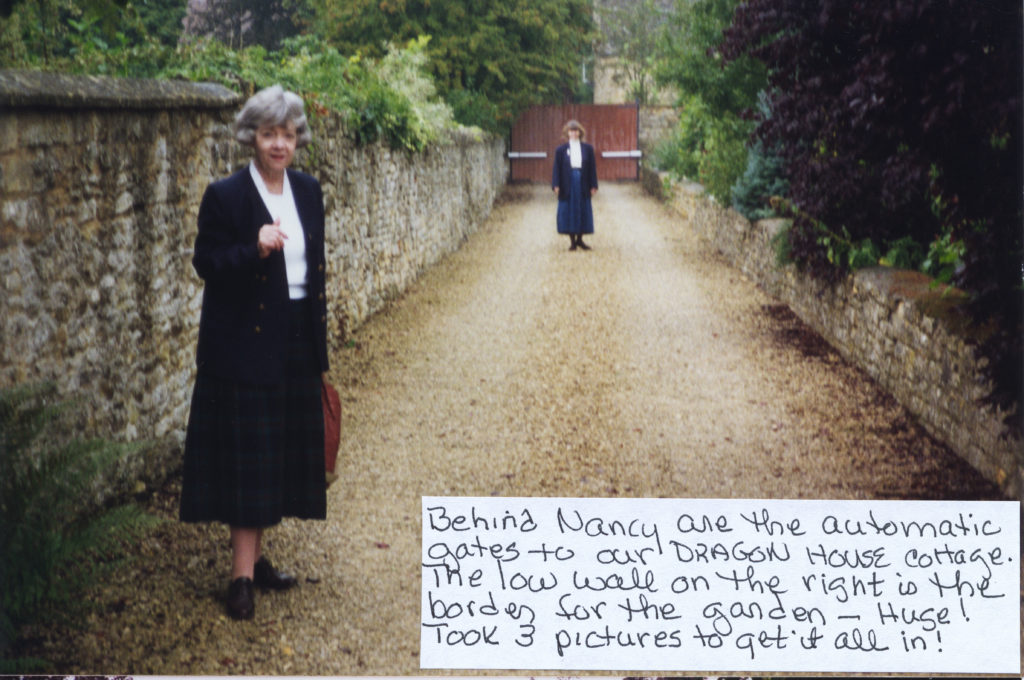 Behind Nancy are the automatic
gates to our DRAGON HOUSE cottage.
The low wall on the right is the
border for the garden - Huge!
Took 3 pictures to get it all in!